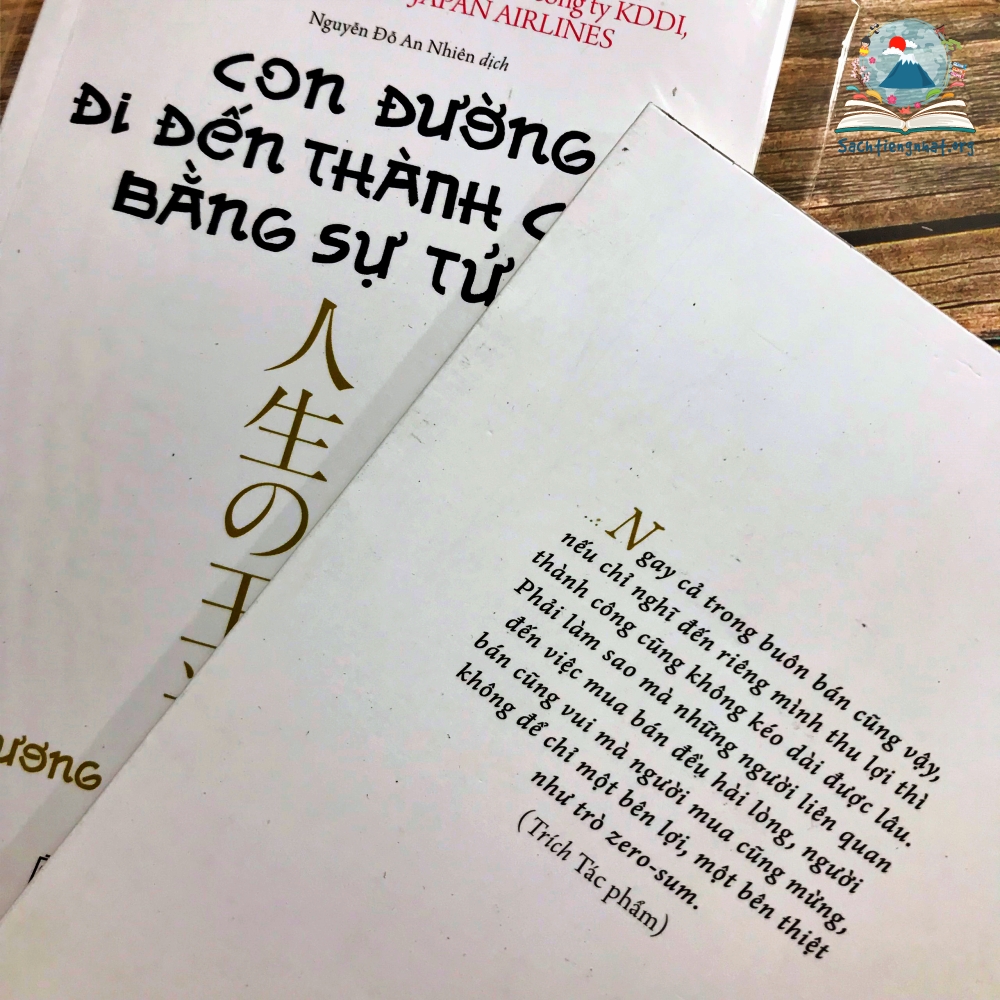 công ty KDDI,
JAPAN AIRLINES
Nguyễn Đỗ An Nhiên dịch
CON ĐƯỜNG
ĐI ĐẾN THÀNH C
BẰNG SỰ TỬ
人生の王
ương
Sachtiengnhat.org
...: Ngay cả trong buôn bán cũng vậy,
nếu chỉ nghĩ đến riêng mình thu lợi thì
thành công cũng không kéo dài được lâu.
Phải làm sao mà những người liên quan
đến việc mua bán đều hài lòng, người
bán cũng vui mà người mua cũng mừng,
không để chỉ một bên lợi, một bên thiệt
như trò zero-sum.
(Trích Tác phẩm)